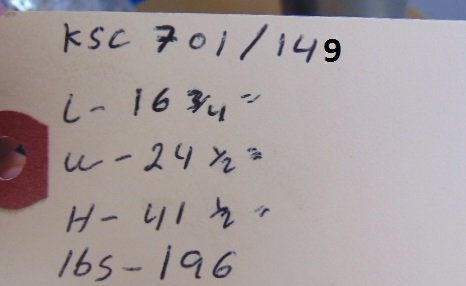 KSC 701/149
L- 16 3/4"
W - 24 1/2"
H - 41 1/2"
lbs - 196